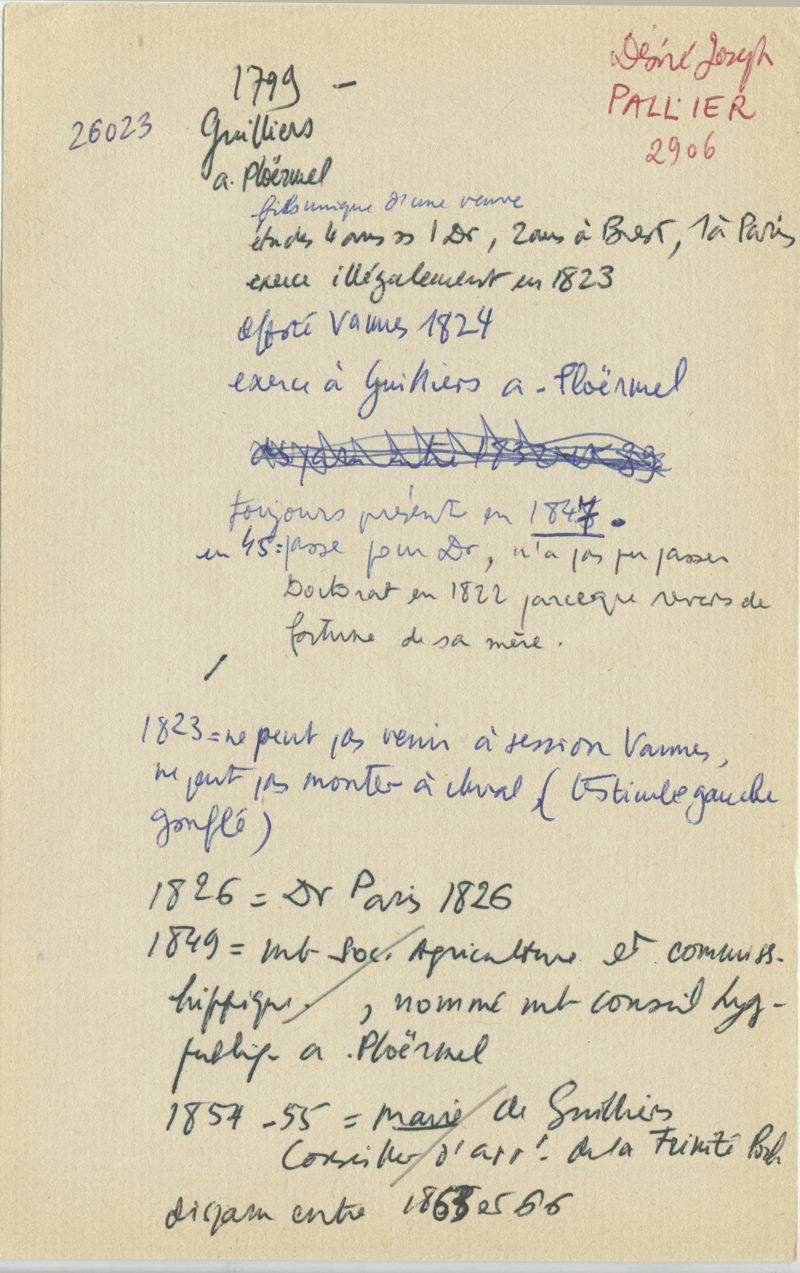 Désiré Joseph
PALLIER
2906
1799 -
26023
Guilliers
a. Ploërmel
fils unique d'une veuve
études 4 ans ss 1 Dr, 2 ans à Brest, 1 à Paris
exerce illégalement en 1823
offsté Vannes 1824
exerce à Guilliers a - Ploërmel
disparu entre 1852 et 89
toujours présent en 1847.
en 45 = passe pour Dr, n'a pas pu passer
Doctorat en 1822 parceque revers de
fortune de sa mère.
1823 = ne peut pas venir à session Vannes,
ne peut pas monter à cheval, (testicule gauche
gonflé)
1826 = Dr Paris 1826
1849 = mb Soc. Agriculture et commiss.
hippique, nommé mb conseil hyg-
publiq. a. Ploërmel
1854 - 55 = maire de Guilliers
Conseiller d'arrt. de la Trinité Porh
disparu entre 1865 et 66